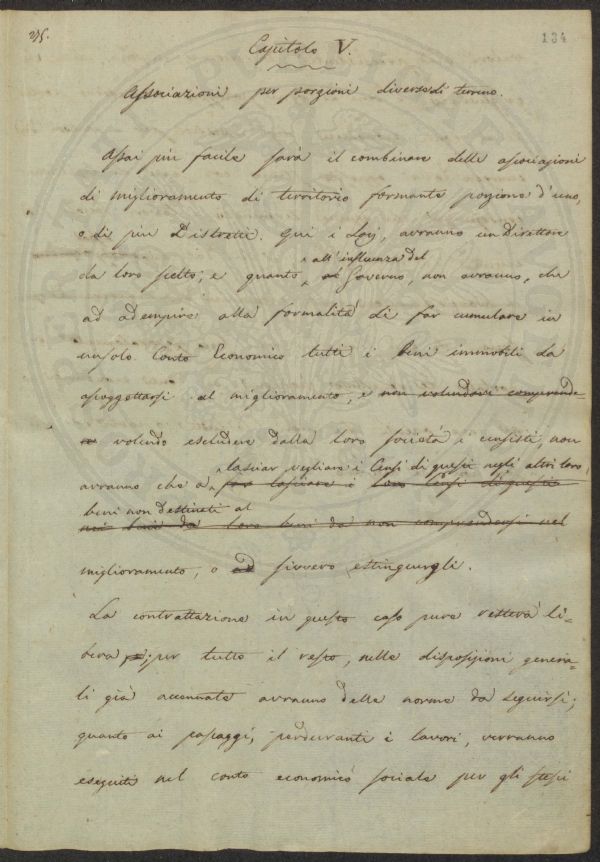 275.
134
Capitolo V.
Associazioni per porzioni diverse di terreno.
Assai più facile sarà il combinare delle associazioni
di miglioramento di territorio formante porzione d'uno,
o di più Distretti. Qui i Socj, avranno un Direttore
da loro scelto; e quanto all'influenza del Governo, non avranno, che
ad adempire alla formalità di far cumulare in
un solo Conto Economico tutti i beni immobili da
assoggettarsi al miglioramento, e non volendovi comprende-
re volendo escludere dalla loro società i censisti, non
avranno che a lasciar vegliare i Censi di questi negli altri loro
far lasciare i loro Censi di questi
beni non destinati al
nei beni da loro beni da non comprendersi nel
miglioramento, o ad sivvero estinguergli.
La contrattazione in questo caso pure resterà li-
bera per tutto il resto, nelle disposizioni genera-
li già accennate avranno delle norme da seguirsi;
quanto ai passaggi, perduranti i lavori, verranno
eseguiti nel conto economico sociale per gli stessi